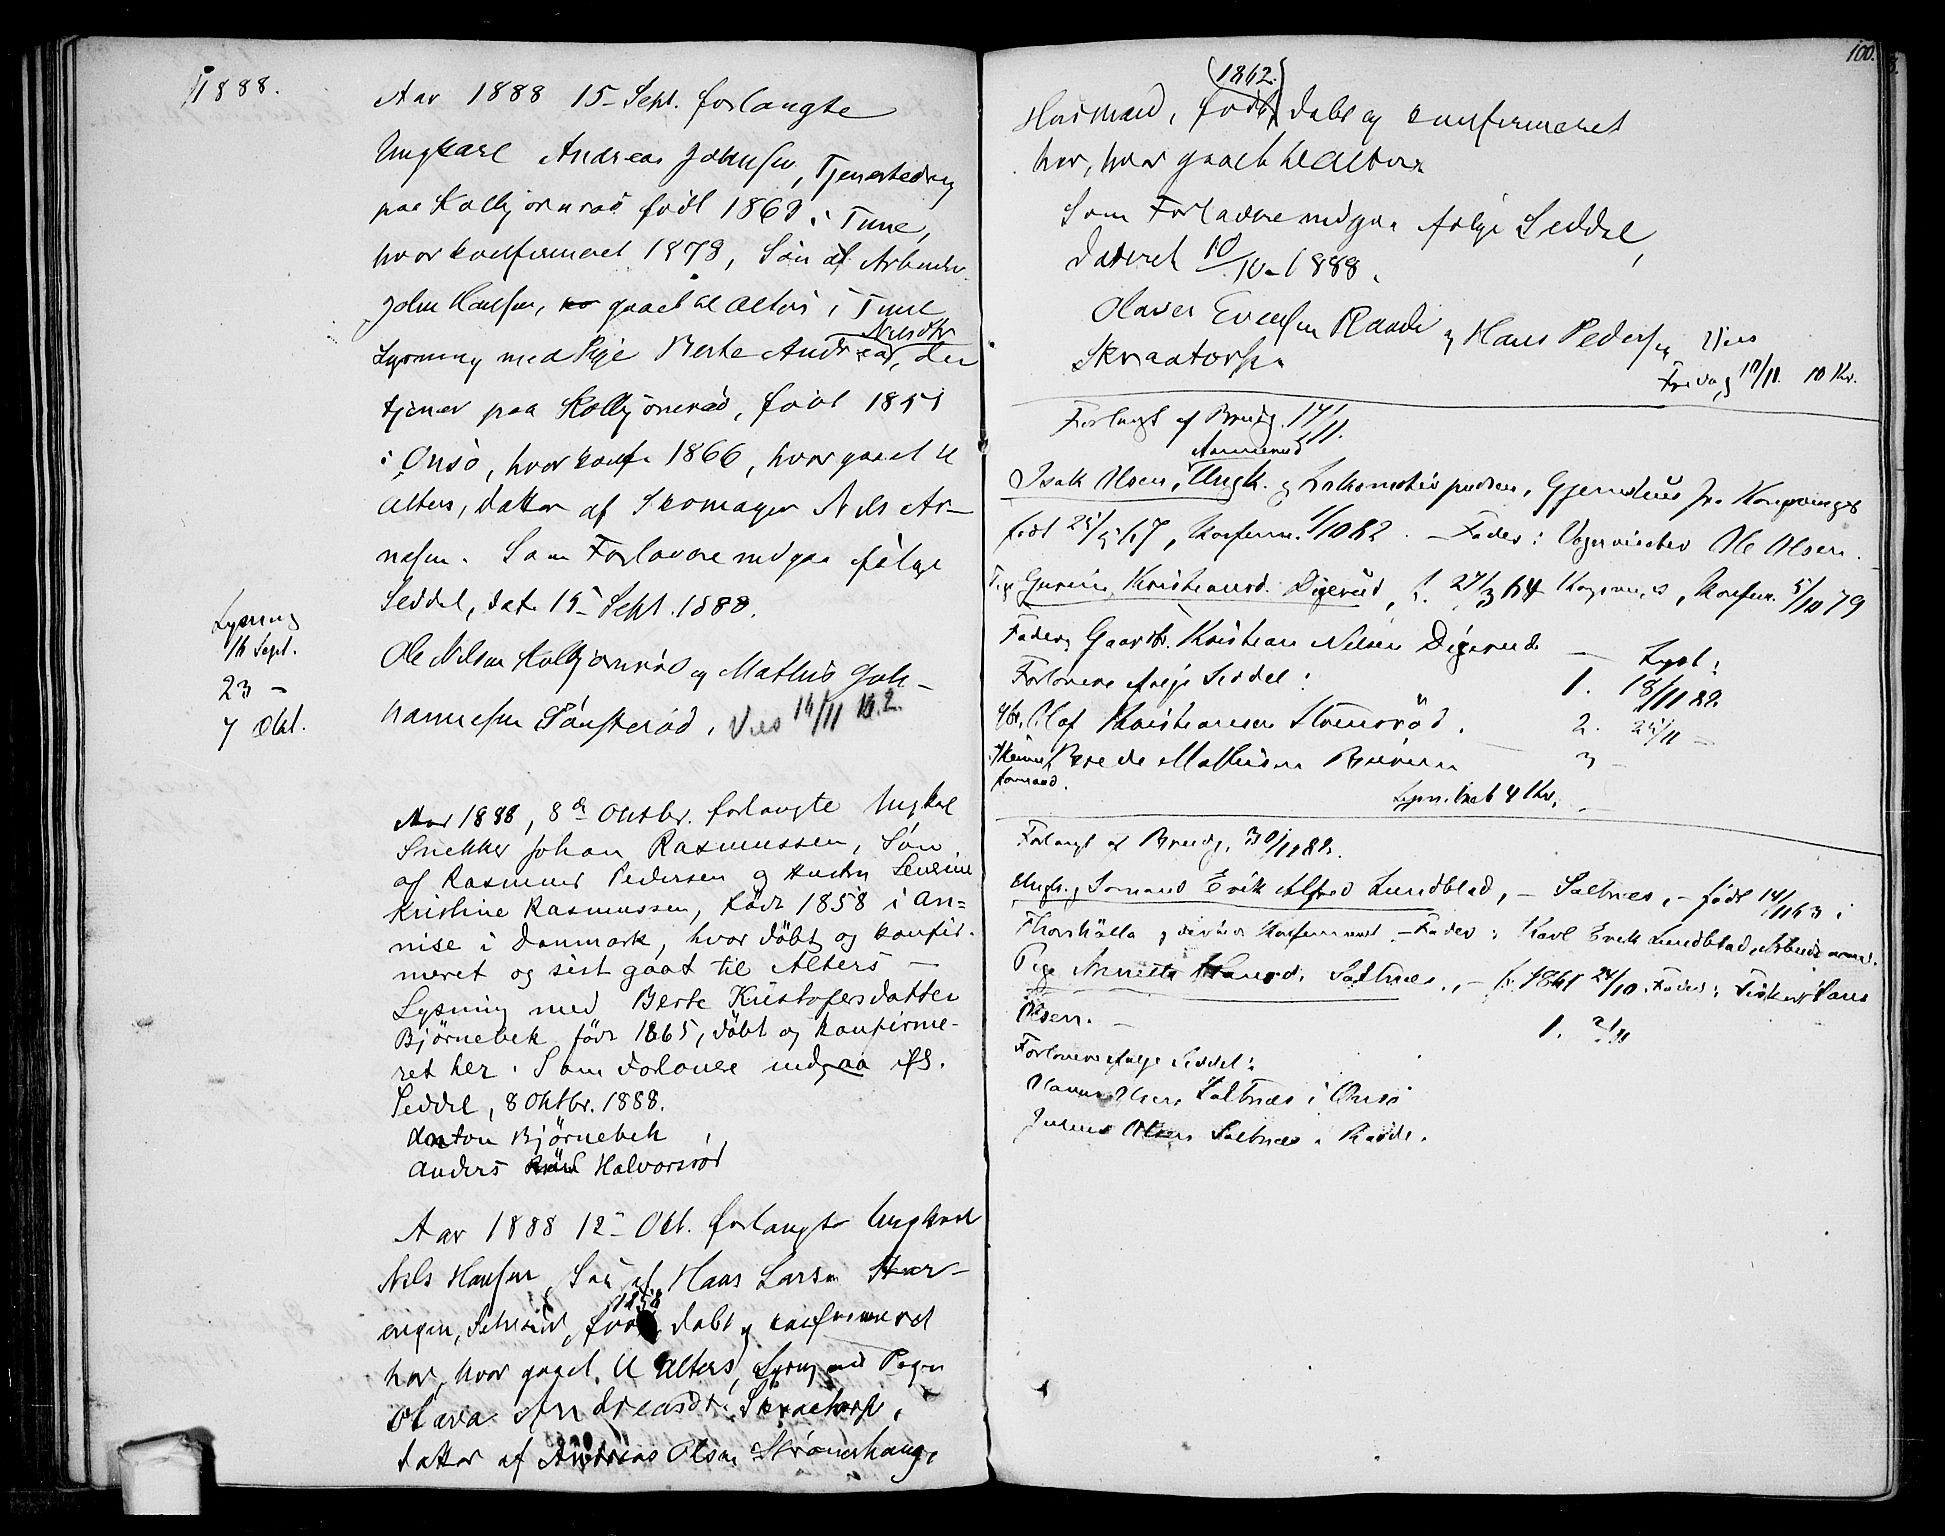 1888.
Aar 1888 15 Sept. forlangte
Ungkarl Andreas Johnsen, Tjenestedreng
paa Kolbjørnsrød født 186 i Tune,
hvor konfirmeret 1878, Søn af Arbeider
John Hansen, gaaet til Alters i Tune
Lysning med Pige Berte Andrea Nilsdtr, der
tjener paa Kolbjørnsrød, født 1851
i Onsø, hvor konf. 1866, hvor gaaet til
Alters, Datter af Skomager Nils Ar-
nesen. Som Forlovere indgaa følge
Seddel, dat. 15 Sept. 1888.
Lysning
16 Sept.
23 -
7 Okt.
Ole Nilsen Kolbjørnsrød og Mathis Joh-
hannesen Tønsterød. Vies 16/11 Kl. 2.
Aar 1888, 8de Oktbr. forlangte Ungkarl
Snekker Johan Rasmussen, Søn
af Rasmus Pedersen og Hustru Severine
Kristine Rasmussen, født 1858 i An=
nise i Danmark, hvor døbt og konfir-
meret og sist gaat til Alters -
Lysning med Berte Kristofersdatter
Bjørnebek født 1865, døbt og konfirme-
ret her. Som Forlovere indgaa flg.
Seddel, 8 Oktbr. 1888.
Anton Bjørnebek
Anders Halvorsrød
Aar 1888 12 Okt. forlangte Ungkarl
Nils Hansen, Søn af Hans Larsen
født 1858, døbt og konfirmeret
her, hvor gaaet til Alters, Lysning med Pigen
Olava Andreasdtr. Skraatorp,
Datter af Andreas Olsen Strømshaug
100.
Husmand, født (1862.) døbt og konfirmeret
her, hvor gaaet til Alters.
Som Forlovere indgaa følge Seddel,
dateret 10/10 1888.
Olaves Evensen Raade og Hans Pedersen
Skraatorp. Vies
Fredag 10 Kr.
Forlangt af Brudg. 17/11.
Isak Olsen, Aannerud Ungk. og Lokomotivpudser, Gjenslus fra Kongsvinger
født 25/5 67, Konferm. 1/10 82. - Fader: Vognvisiter Ole Olsen.
Pige Gurine Kristiansd. Digerud, f. 27/3 64 Kongsvinger, Konfirm. 5/10 79
Fader, Gaardbr. Kristian Nilsen Digerud - Lyst:
Forlovere ifølge Seddel: 1. 18/11 88
Gbr. Olaf Kristiansen Stensrød. 2. 25/11 -
Brede Mathisen 3 -
formand. Lysn. bet 4 Kr.
Forlangt af Brudg. 30/11 88.
Ungk. og Sømand Erik Alfred Lundblad, - Saltnes, - født 14/11 63 i
Thorskålla og dersteds Konfirmeret - Fader: Karl Erik Lundblad, Arbeidsmand.
Pige Annette Hansd. Saltnes, - f. 1861 24/10. Fader: Fisker Hans
Olsen. - 1. 2/11
Forlovere ifølge Seddel:
Olsen, Saltnes i Onsø
Julius Olsen Saltnes i Raade.